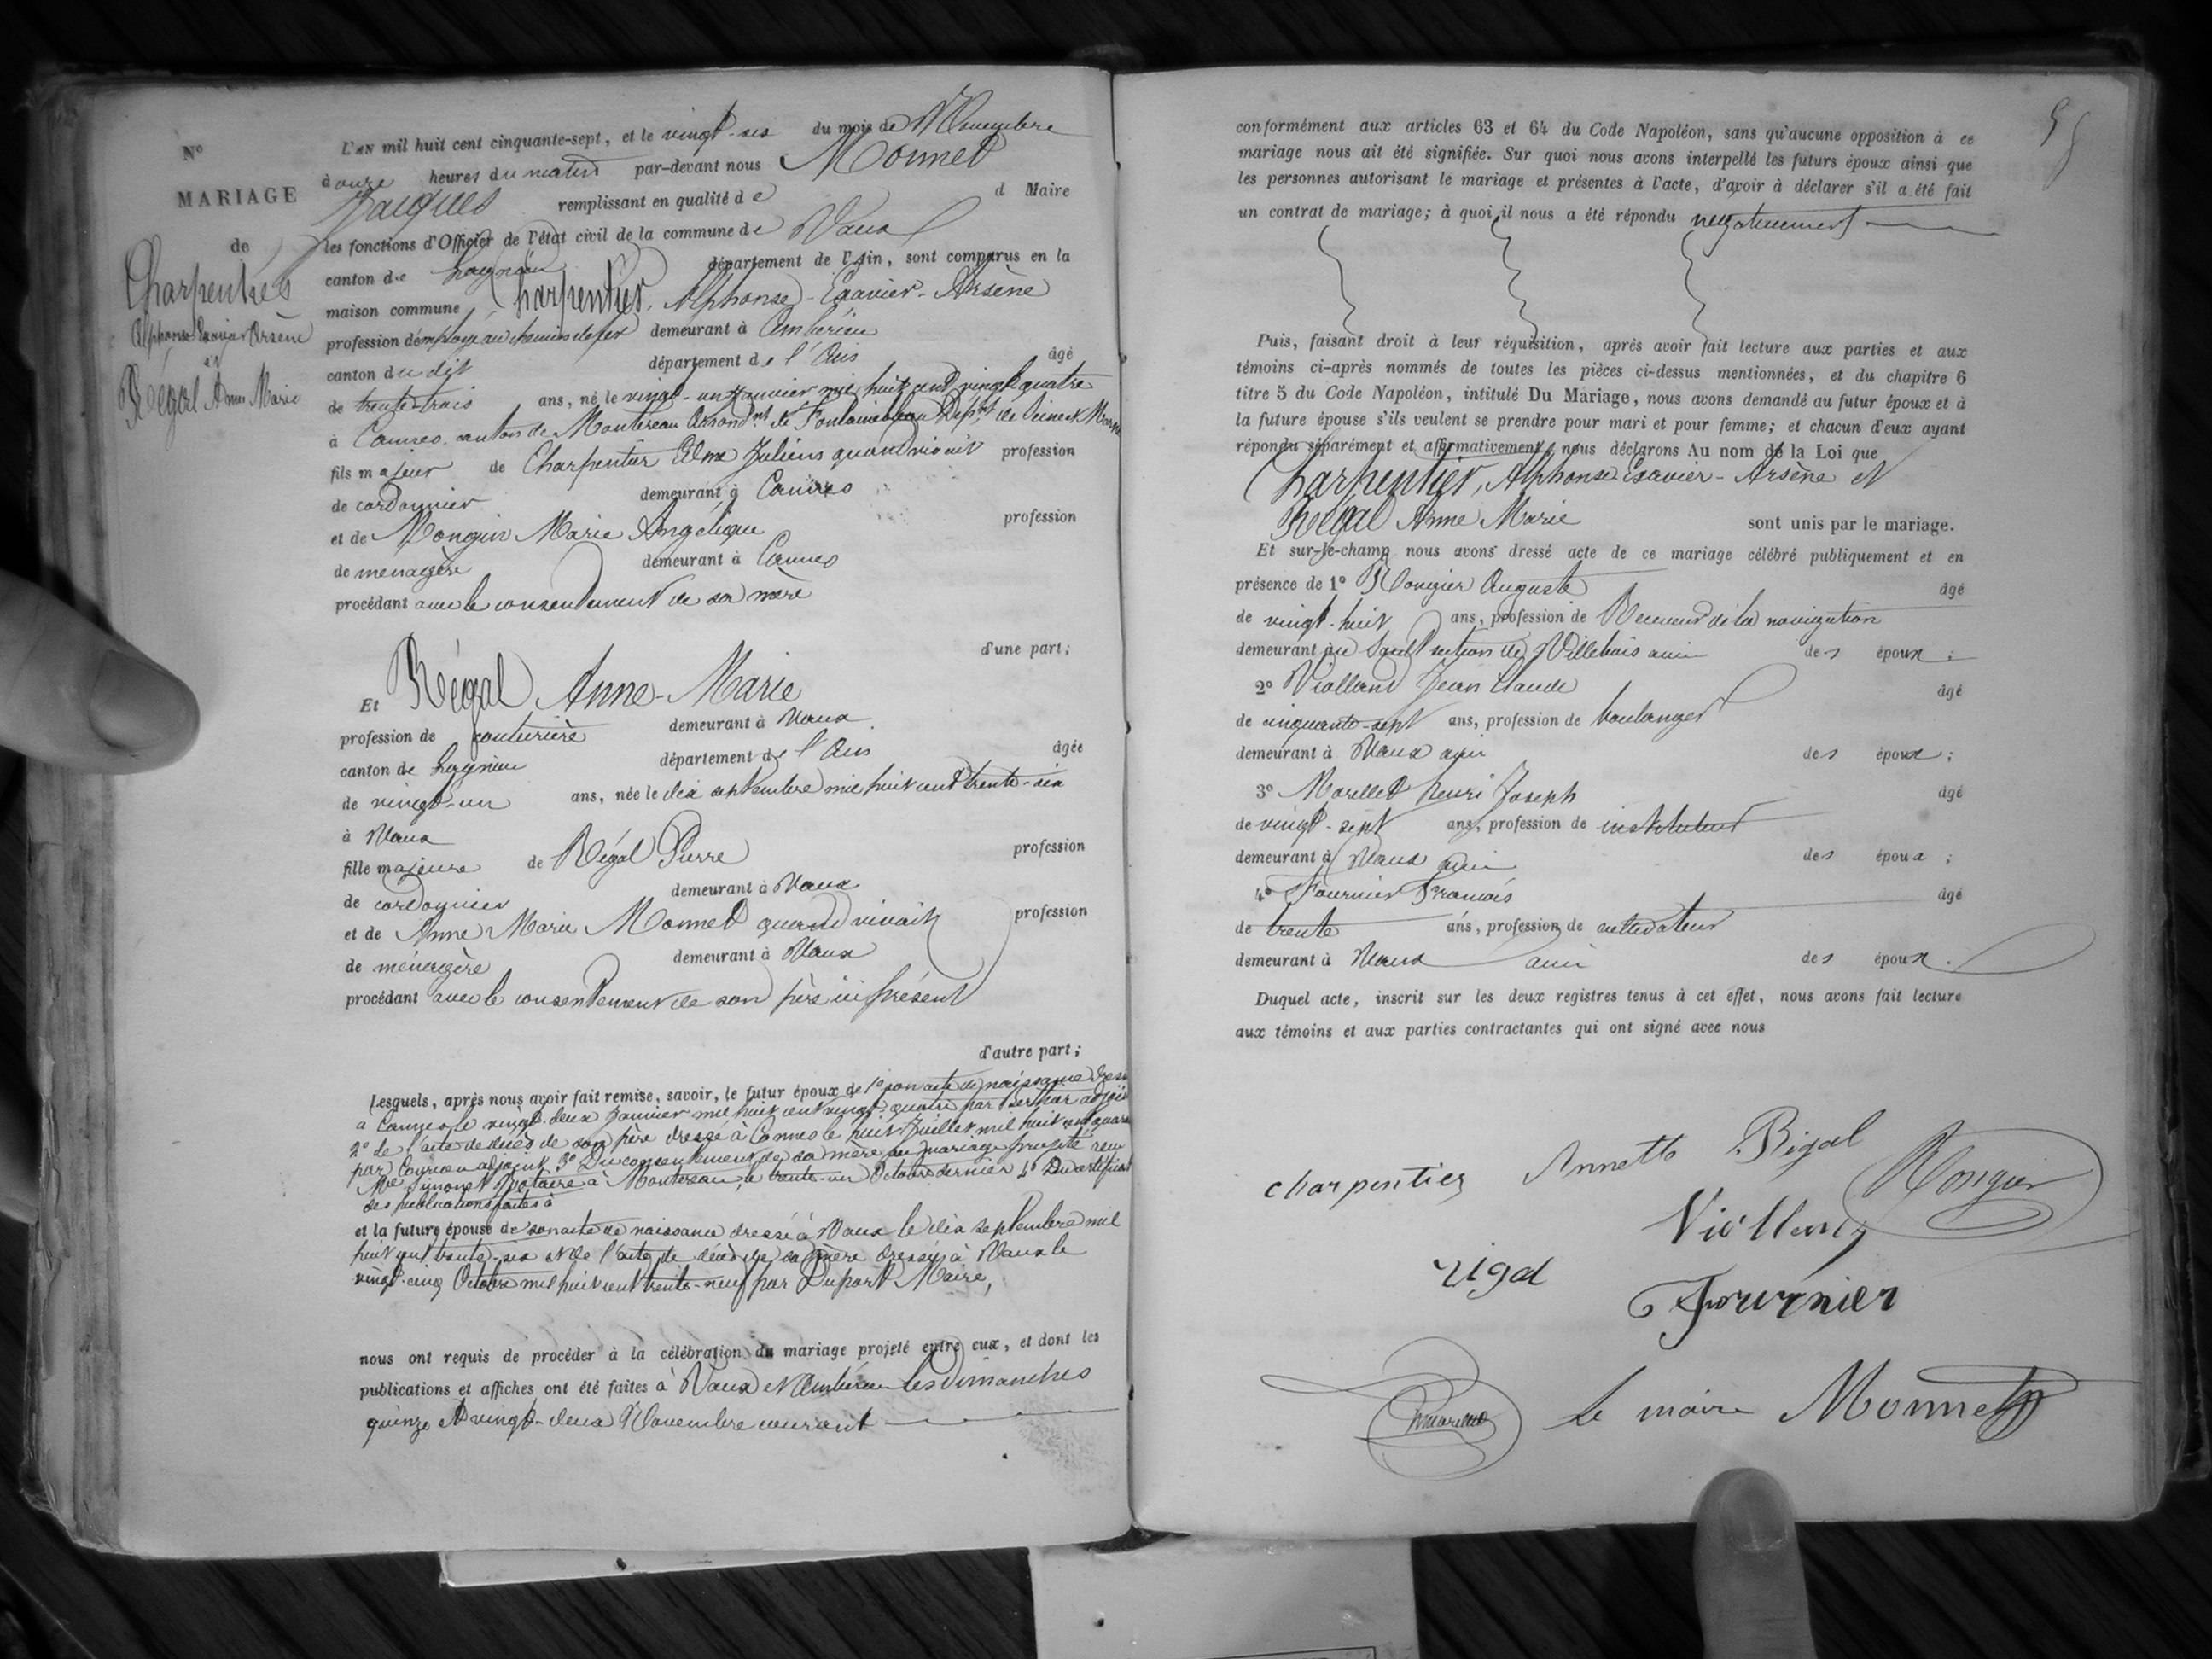 N°
MARIAGE
de
Charpentier
Alphonse Exavier Arsène
et
Régal Anne Marie
L'AN mil huit cent cinquante-sept, et le vingt-six du mois de Novembre
à onze heures du matin par-devant nous Monnet
Jacques remplissant en qualité de d Maire
les fonctions d'Officier de l'état civil de la commune de Vaux
canton de Lagnieu département de l'Ain, sont comparus en la
maison commune Charpentier, Alphonse-Exavier-Arsène
profession d'employé au chemin de fer demeurant à Ambérieu
canton du dit département de l'Ain âgé
de trente-trois ans, né le vingt-un Janvier mil huit cent vingt quatre
à Cannes canton de Montereau Arrond.nt de Fontainebleau Dép.nt de Seine et Marne
fils majeur de Charpentier Julien quand vivait profession
de cordonnier demeurant à Cannes
et de Mongin Marie Angélique profession
de ménagère demeurant à Cannes
procédant avec le consentement de sa mère
d'une part;
Et Régal Anne-Marie
profession de couturière demeurant à Vaux
canton de Lagnieu département de l'Ain âgée
de vingt-un ans, née le dix septembre mil huit cent trente-six
à Vaux
fille majeure de Régal Pierre profession
de cordonnier demeurant à Vaux
et de Anne Marie Monnet quand vivait profession
de ménagère demeurant à Vaux
procédant avec le consentement de son père ici présent
d'autre part;
Lesquels, après nous avoir fait remise, savoir, le futur époux de 1° son acte de naissance dressé
à Cannes le vingt-deux Janvier mil huit cent vingt-quatre par adjoint
2° de l'acte de décès de son père dressé à Cannes le huit Juillet mil huit cent
par adjoint 3° Du consentement de sa mère au mariage projeté reçu
Me Simonet Notaire à Montereau, le trente-un Octobre dernier 4° Du certificat
des publications faites à
et la future épouse de son acte de naissance dressé à Vaux le dix septembre mil
huit cent trente-six et de l'acte de décès de sa mère dressé à Vaux le
vingt-cinq Octobre mil huit cent trente-neuf par Dupont Maire,
nous ont requis de procéder à la célébration du mariage projeté entre eux, et dont les
publications et affiches ont été faites à Vaux et Ambérieu les Dimanches
quinze et vingt-deux Novembre courant
conformément aux articles 63 et 64 du Code Napoléon, sans qu'aucune opposition à ce
mariage nous ait été signifiée. Sur quoi nous avons interpellé les futurs époux ainsi que
les personnes autorisant le mariage et présentes à l'acte, d'avoir à déclarer s'il a été fait
un contrat de mariage; à quoi il nous a été répondu négativement
Puis, faisant droit à leur réquisition, après avoir fait lecture aux parties et aux
témoins ci-après nommés de toutes les pièces ci-dessus mentionnées, et du chapitre 6
titre 5 du Code Napoléon, intitulé Du Mariage, nous avons demandé au futur époux et à
la future épouse s'ils veulent se prendre pour mari et pour femme; et chacun d'eux ayant
répondu séparément et affirmativement, nous déclarons Au nom de la Loi que
Charpentier, Alphonse Exavier-Arsène et
Régal Anne Marie sont unis par le mariage.
Et sur-le-champ nous avons dressé acte de ce mariage célébré publiquement et en
présence de 1° Rongier Auguste âgé
de vingt-huit ans, profession de Receveur de la navigation
demeurant au Sault section de Villebois ami des époux;
2° Violland Jean Claude âgé
de cinquante-sept ans, profession de boulanger
demeurant à Vaux ami des époux;
3° Morellet henri Joseph âgé
de vingt-sept ans, profession de instituteur
demeurant à Vaux ami des époux;
4° Fournier François âgé
de trente ans, profession de cultivateur
demeurant à Vaux ami des époux.
Duquel acte, inscrit sur les deux registres tenus à cet effet, nous avons fait lecture
aux témoins et aux parties contractantes qui ont signé avec nous
charpentier Annette Rigal Rongier
Violland
rigal
Fournier
le maire Monnet